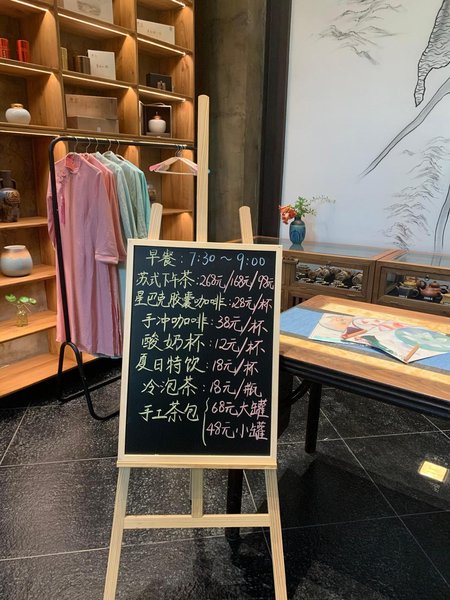 早餐:7:30~9:00
苏式下午茶:268元/168元/98元
星巴克胶囊咖啡:28元/杯
手冲咖啡:38元/杯
酸奶杯:12元/杯
夏日特饮:18元/杯
冷泡茶:18元/瓶
手工茶包{68元大罐
48元小罐